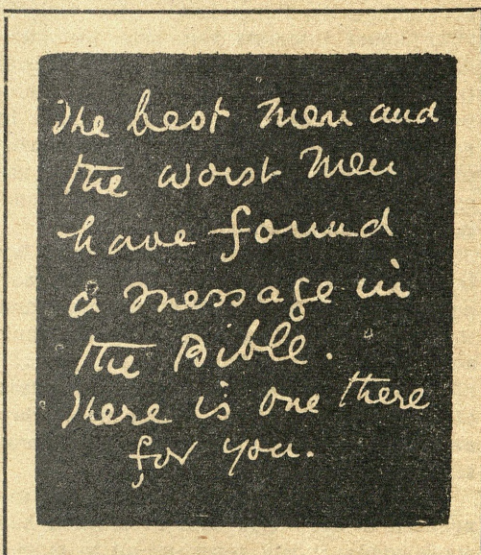 The best men and
the worst men
have found
a message in
the Bible.
There is one there
for you.